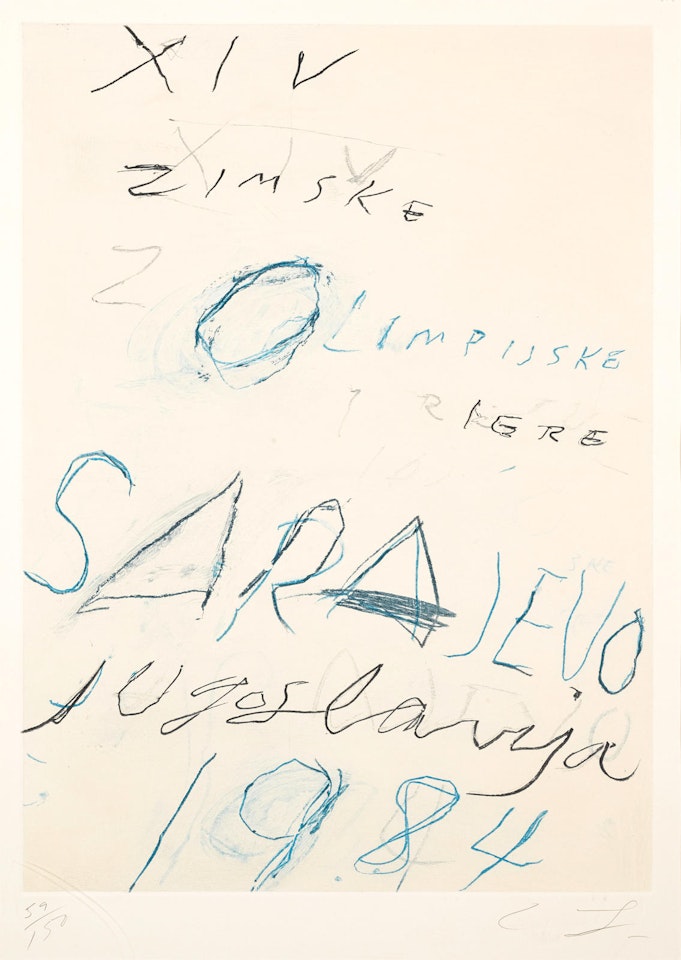 XIV
XIV
ZIMSKE
Z
OLIMPIJSKE
IGRE
SARAJEVO
Jugoslavija
19.84
59/150